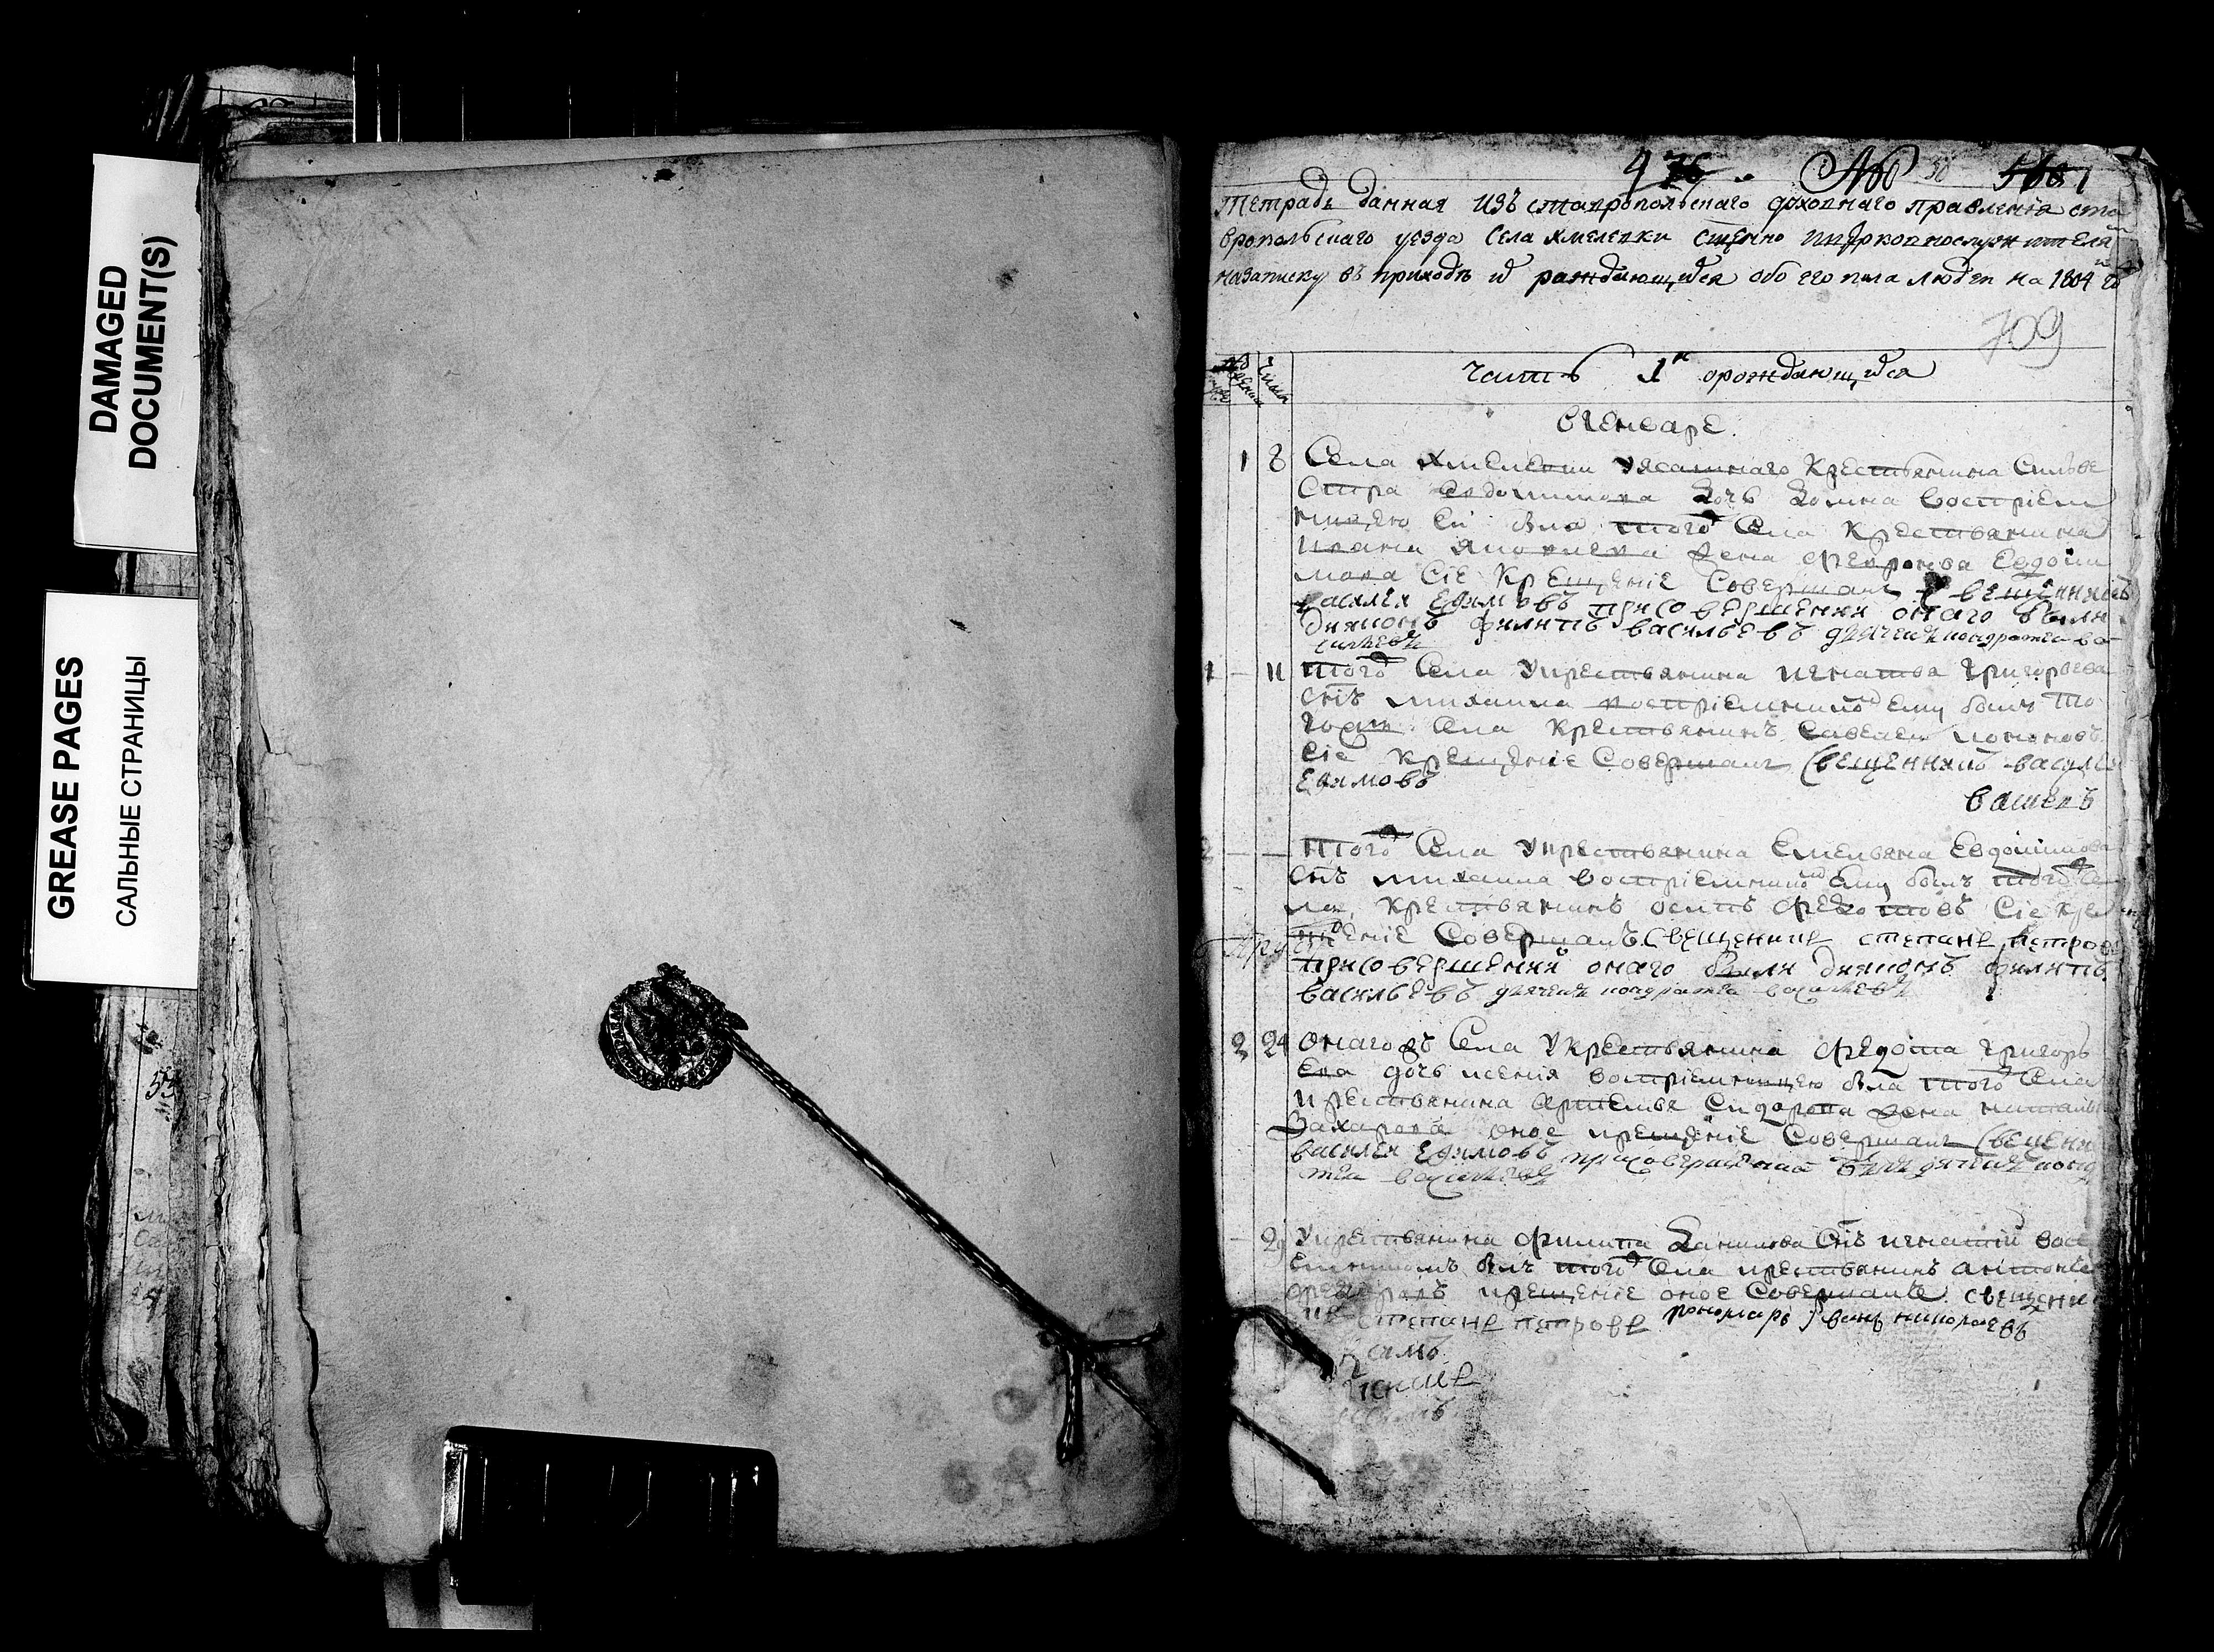 DAMAGED
DOCUMENT(S)
GREASE PAGES
САЛЬНЫЕ СТРАНИЦЫ
709
Тетрадь данная изъ ставропольскаго духовнаго правленія ста
вропольскаго уезда села хмелевки
назаписку въ приходѣ ѡ раждающихся обоего пола людеи на 1804 го
часть 1 я ораждающихся
вгенваре
1 8 Села Хмелевки Крестьянина Сильве
стра Евдокимова дочь Домна восприем
ницею еи была того Села Крестьянина
Ивана Яковлева жена Февронья Евдоки
мова Сіе Крещеніе Совершал Священникъ
василеи Ефимовъ присовершении онаго были
дияконъ филипъ васильевъ дьячекъ кондратеи ва
сильевъ
1 11 того Села укрестьянина игнатья григорьева
снъ михаила восприемникомъ ему былъ то
гожъ села крестьянинъ Савелеи
Сіе Крещеніе Совершалъ Священникъ василеи
Ефимовъ
того Села укрестьянина Емельяна Евдокимова
снъ михаила восприемникомъ ему былъ того Се
ла крестьянинъ осипъ Федотовъ Сіе кре
щеніе Совершалъ Священникъ степанъ петровъ
присовершении онаго были диаконъ филипъ
васильевъ дьячекъ кондратеи васильевъ
2 24 онагожъ Села укрестьянина Федота григорь
ева дочь ксенія восприемницею была того Села
крестьянина Артемья Сидорова жена наталья
Захарова оное крещеніе Совершалъ Свещени
василеи Ефимовъ присовершении были дьячекъ конд
теи васильевъ
29 укрестьянина Филипа Данилова Снъ игнатий вос
емникомъ былъ того Села крестьянинъ
крещеніе оное Совершалъ свещени
степанъ петровъ пономарь иванъ николаевъ